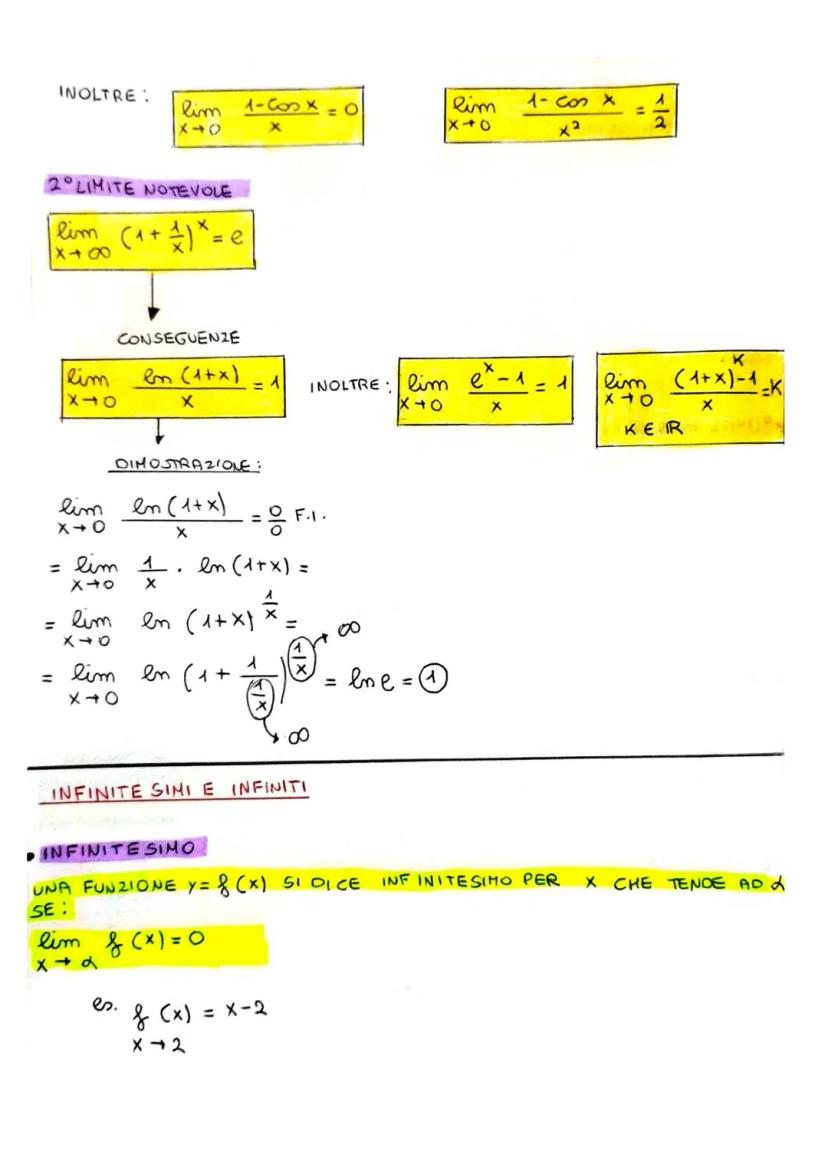 INOLTRE: lim x→0 (1-cos x)/x = 0 lim x→0 (1- cos x)/x² = 1/2
2° LIMITE NOTEVOLE
lim x→∞ (1+ 1/x)^x = e
CONSEGUENZE
lim x→0 ln (1+x)/x = 1 INOLTRE: lim x→0 (e^x - 1)/x = 1 lim x→0 ((1+x)^K - 1)/x = K
K ∈ ℝ
DIMOSTRAZIONE:
lim x→0 ln (1+x)/x = 0/0 F.I.
= lim x→0 1/x · ln (1+x) =
= lim x→0 ln (1+x)^(1/x) =
= lim x→0 ln (1 + 1/(1/x))^(1/x) = ln e = 1
∞
∞
INFINITESIMI E INFINITI
• INFINITESIMO
UNA FUNZIONE y = f (x) SI DICE INFINITESIMO PER X CHE TENDE AD α
SE:
lim x→α f (x) = 0
es. f (x) = x-2
x→2